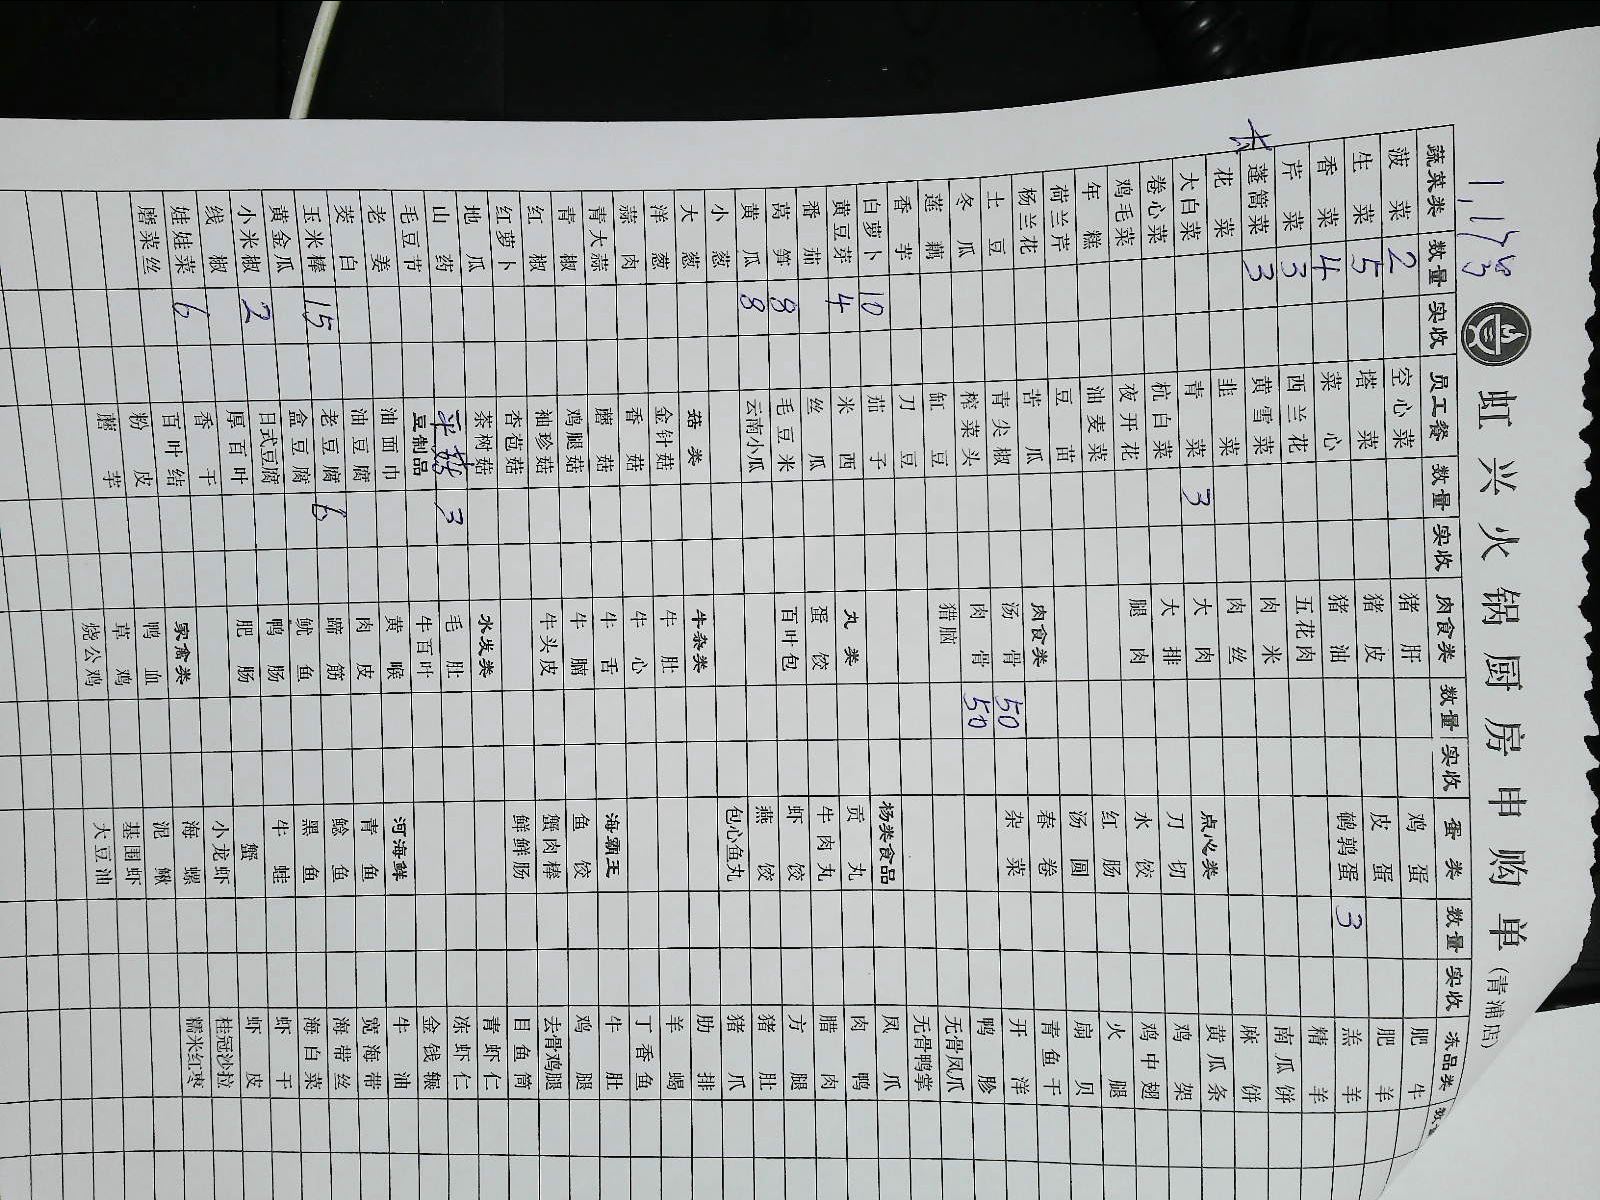 虹兴火锅厨房申购单(青浦店)
蔬菜类 数量 实收 员工餐 数量 实收 肉食类 数量 实收 蛋类 数量 实收 冻品类
菠菜 2 空心菜 猪肝 鸡蛋 肥牛
生菜 5 塔菜 猪皮 皮蛋 肥羊
香菜 4 菜心 猪油 鹌鹑蛋 3 羔羊
芹菜 3 西兰花 五花肉 精羊
蓬筒菜 3 黄雪菜 肉米 南瓜饼
花菜 韭菜 肉丝 麻饼
大白菜 青菜 3 大肉 点心类 黄瓜条
卷心菜 杭白菜 大排 刀切 鸡架
鸡毛菜 夜开花 腿肉 水饺 鸡中翅
年糕 油麦菜 红肠 火腿
荷兰芹 豆苗 汤圆 扇贝
杨兰花 苦瓜 肉食类 春卷 青鱼干
土豆 青尖椒 汤骨 50 杂菜 开洋
冬瓜 榨菜头 肉骨 50 鸭胗
莲藕 缸豆 猎脑 无骨凤爪
香芋 刀豆 无骨鸭掌
白萝卜 10 茄子 杨类食品 凤爪
黄豆芽 4 米西 丸类 贡丸 肉鸭
番茄 丝瓜 蛋饺 牛肉丸 腊肉
莴笋 8 毛豆米 百叶包 虾饺 方腿
黄瓜 8 云南小瓜 燕饺 猪肚
小葱 包心鱼丸 猪爪
大葱 菇类 牛杂类 肋排
洋葱 金针菇 牛肚 羊蝎
蒜肉 香菇 牛心 丁香鱼
青大蒜 蘑菇 牛舌 海霸王 牛肚
青椒 鸡腿菇 牛腩 鱼饺 鸡腿
红椒 袖珍菇 牛头皮 蟹肉棒 去骨鸡腿
红萝卜 杏苞菇 鲜鲜肠 目鱼筒
地瓜 茶树菇 水发类 青虾仁
山药 平菇 3 毛肚 冻虾仁
毛豆节 豆制品 牛百叶 金钱辗
老姜 油面巾 黄喉 河海鲜 牛油
茭白 油豆腐 肉皮 青鱼 宽海带
玉米棒 15 老豆腐 6 蹄筋 鲶鱼 海带丝
黄金瓜 盒豆腐 鱿鱼 黑鱼 海白菜
小米椒 2 日式豆腐 鸭肠 牛蛙 虾干
线椒 厚百叶 肥肠 蟹 虾皮
娃娃菜 6 香干 小龙虾 桂冠沙拉
磨菜丝 百叶结 家禽类 海螺 糯米红枣
粉皮 鸭血 泥鳅
蘑芋 草鸡 基围虾
烧公鸡 大豆油